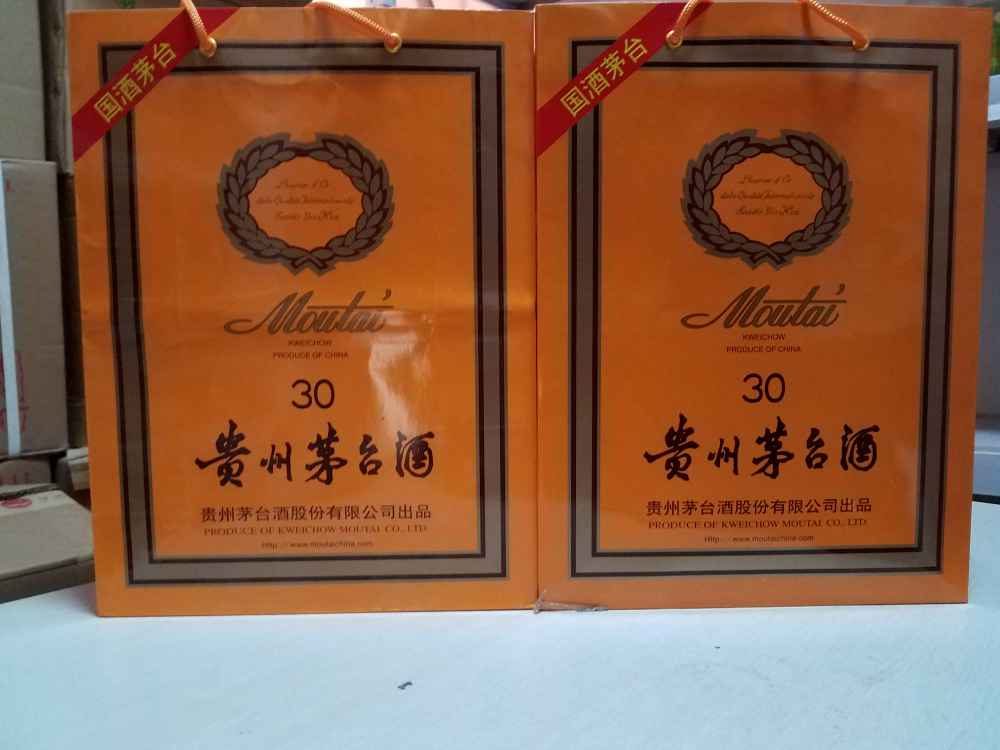 国酒茅台
Moutai
KWEICHOW
PRODUCE OF CHINA
30
贵州茅台酒
贵州茅台酒股份有限公司出品
PRODUCE OF KWEICHOW MOUTAI CO., LTD
Http://www.moutaichina.com
国酒茅台
Moutai
KWEICHOW
PRODUCE OF CHINA
30
贵州茅台酒
贵州茅台酒股份有限公司出品
PRODUCE OF KWEICHOW MOUTAI CO., LTD
Http://www.moutaichina.com